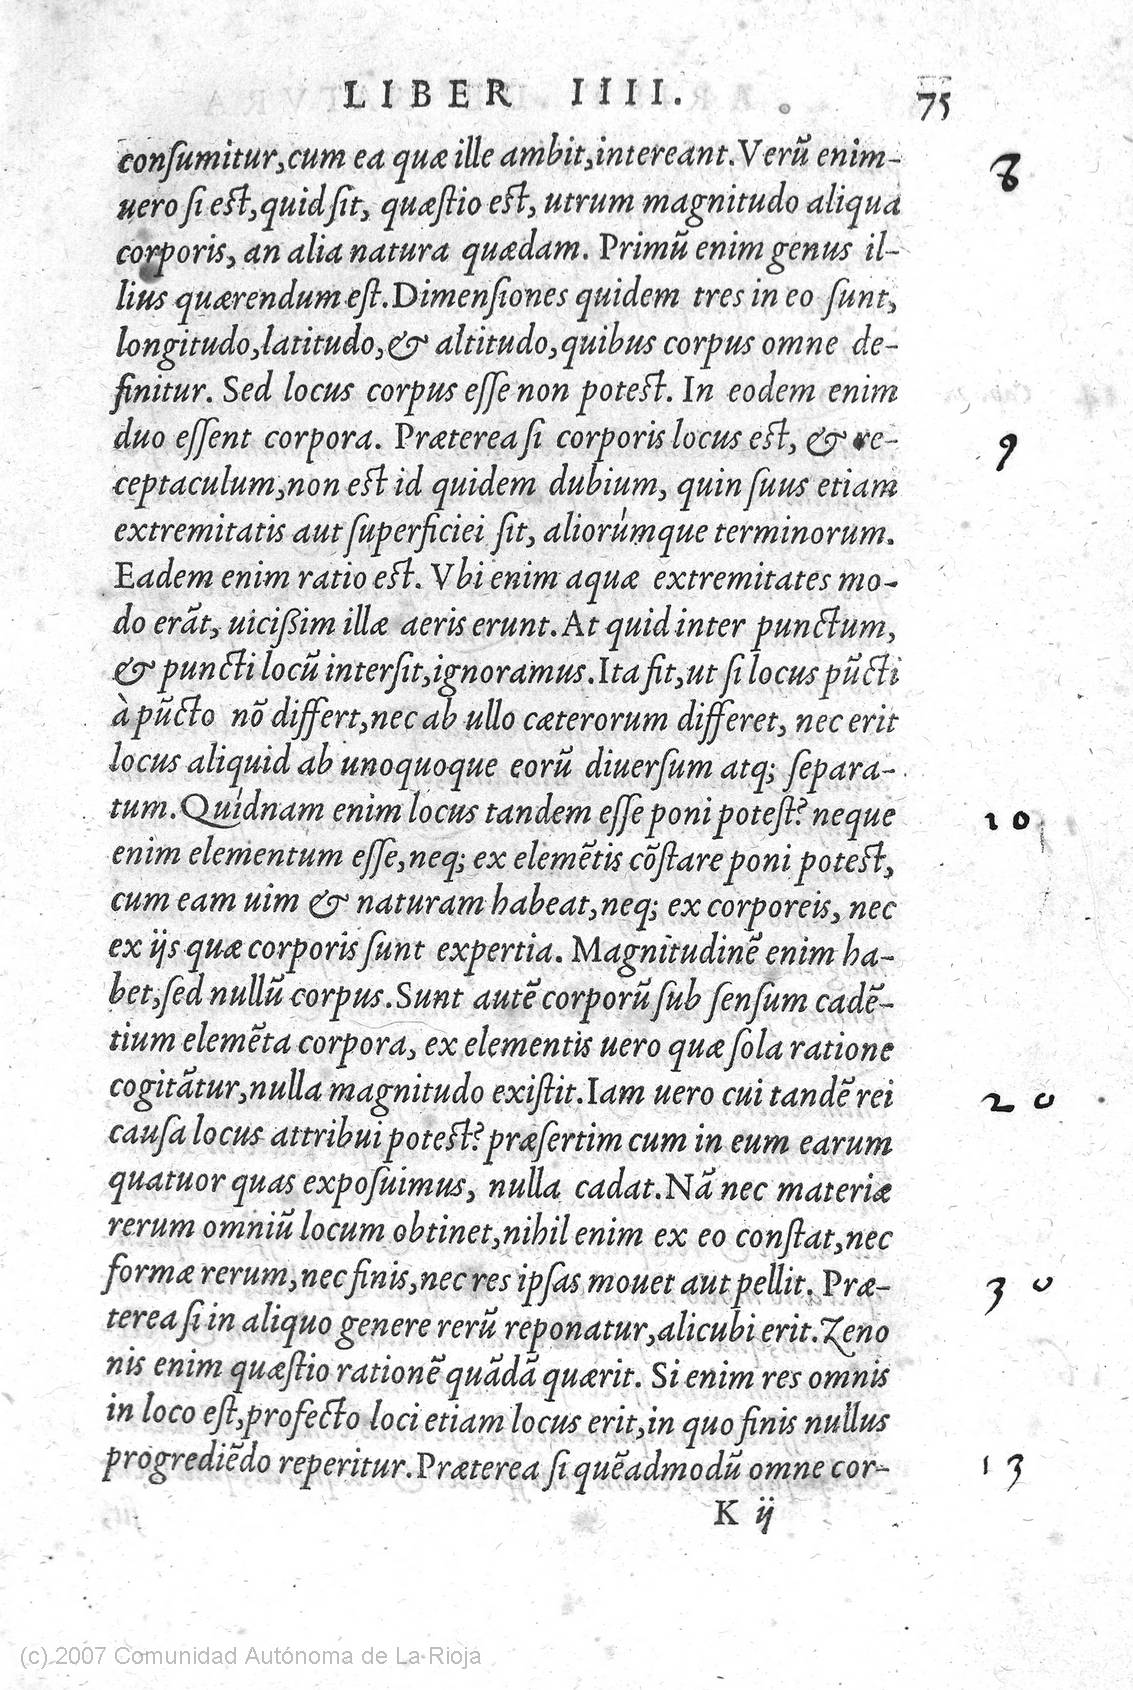 LIBER IIII. 75
conſumitur,cum ea quæ ille ambit,intereant.Verũ enim- 8
uero ſi eſt,quid ſit, quæſtio eſt, utrum magnitudo aliqua
corporis, an alia natura quædam. Primũ enim genus il-
lius quærendum eſt.Dimenſiones quidem tres in eo ſunt,
longitudo,latitudo,& altitudo,quibus corpus omne de-
finitur. Sed locus corpus eſſe non poteſt. In eodem enim
duo eſſent corpora. Præterea ſi corporis locus eſt, & re- 9
ceptaculum,non eſt id quidem dubium, quin ſuus etiam
extremitatis aut ſuperficiei ſit, aliorúmque terminorum.
Eadem enim ratio eſt. Vbi enim aquæ extremitates mo-
do erãt, uicißim illæ aeris erunt.At quid inter punctum,
& puncti locũ interſit,ignoramus.Ita fit,ut ſi locus pũcti
à pũcto nõ differt,nec ab ullo cæterorum differet, nec erit
locus aliquid ab unoquoque eorũ diuerſum atq; ſepara-
tum.Quidnam enim locus tandem eſſe poni poteſt? neque 10
enim elementum eſſe,neq; ex elemẽtis cõſtare poni poteſt,
cum eam uim & naturam habeat,neq; ex corporeis, nec
ex ijs quæ corporis ſunt expertia. Magnitudinẽ enim ha-
bet,ſed nullũ corpus.Sunt autẽ corporũ ſub ſenſum cadẽ-
tium elemẽta corpora, ex elementis uero quæ ſola ratione
cogitãtur,nulla magnitudo exiſtit.Iam uero cui tandẽ rei 20
cauſa locus attribui poteſt? præſertim cum in eum earum
quatuor quas expoſuimus, nulla cadat.Nã nec materiæ
rerum omniũ locum obtinet,nihil enim ex eo conſtat,nec
formæ rerum,nec finis,nec res ipſas mouet aut pellit. Præ- 30
terea ſi in aliquo genere rerũ reponatur,alicubi erit.Zeno
nis enim quæſtio rationẽ quãdã quærit. Si enim res omnis
in loco eſt,profecto loci etiam locus erit,in quo finis nullus
progrediẽdo reperitur.Præterea ſi quẽadmodũ omne cor- 13
K ij
(c) 2007 Comunidad Autónoma de La Rioja